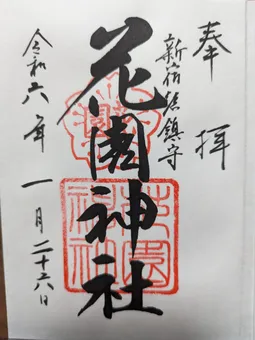 奉拝
新宿総鎮守
花園神社
令和六年一月二十六日